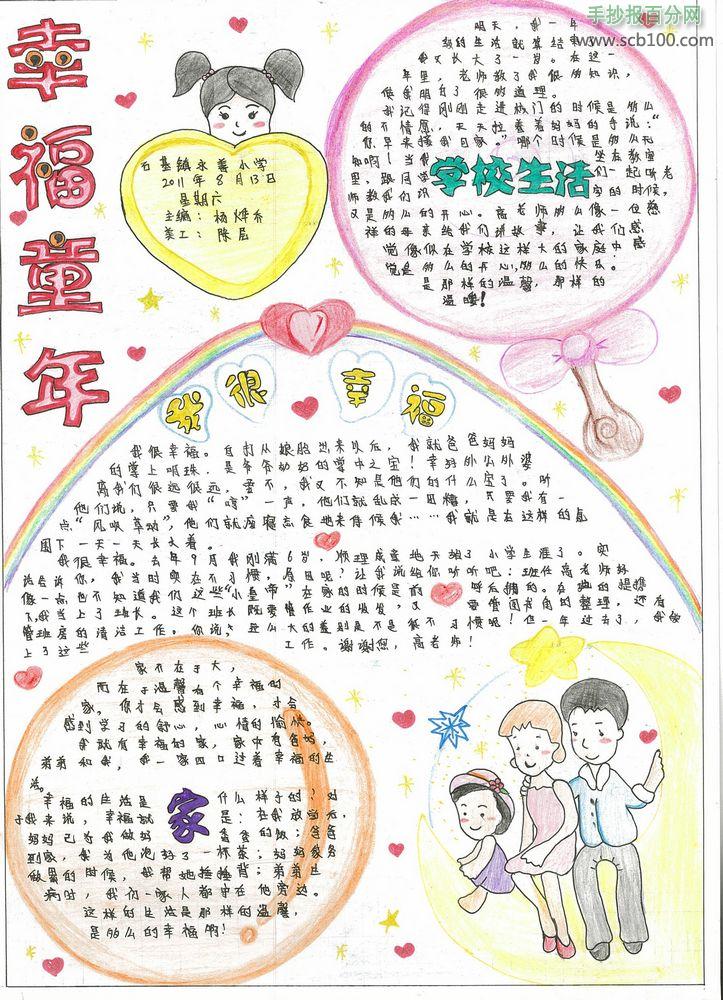 手抄报百分网
www.scb100.com
幸福童年
石基镇永善小学
2011年8月13日
星期六
主编：杨烨乔
美工：陈晨
学校生活
明天，我一年
级的生活就算结束了
我又长大了一岁。在这一
年里，老师教了我很多知识，
使我明白了很多道理。
我记得刚刚走进校门的时候是多么
的不情愿，天天拉着着妈妈的手说：“
你早来接我回家。”哪个时候是多么无
知啊！当我 坐在教室
里，跟同学 们一起听老
师教我们识 字的时候，
又是多么的开心。高老师多么像一位慈
祥的母亲给我们讲故事，让我们感
觉像似在学校这样大的家庭中感
觉是多么的开心，多么的快乐。
是那样的温馨，那样的
温暖！
我很幸福
我很幸福。自打从娘胎出来以后，我就爸爸妈妈
的掌上明珠，是爷爷奶奶的掌中之宝！幸好外公外婆
离我们很远很远，要不，我又不知是他们的什么宝了。听
他们说，只要我“哼”一声，他们就乱成一团糟，只要我有一
点“风吹草动”，他们就废寝忘食地来侍候我……我就是在这样的氛
围下一天一天长大着。
我很幸福。去年9月我刚满6岁，顺理成章地开始了小学生涯了。实
话告诉你，我当时实在不习惯，原因呢？让我说给你听听吧：班任高老师好
像一点也不知道我们这些“小皇帝”在家的时候是前 呼后拥的。在她的提携
下，我当上了班长。这个班长既要管作业的发发，又 要管图书角的整理，还有
管班房的清洁工作。你说，这么大的差别是不是会不习惯呢！但一年过去了，我做
上了这些 工作。谢谢您，高老师！
家
家不在于大，
而在于温馨有个幸福的
家。你才会感到幸福，才会
感到学习的舒心，心情的愉快。
我就有幸福的家，家中有爸妈，
弟弟和我，我一家四口过着幸福的生
活。
幸福的生活是 什么样子的？对
于我来说，幸福就 是：在我放学后，
妈妈已为我做好 香香的饭；爸爸
到感，我为他泡好了一杯茶；妈妈家务
做累的时候，我帮她捶捶背；弟弟生
病时，我们一家人都守在他旁边。
这样的生活是那样的温馨，
是多么的幸福啊！